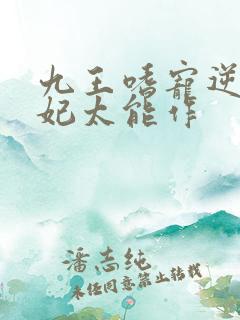 九王嗜宠逆
妃太能作
潘志纯
未经同意禁止转载